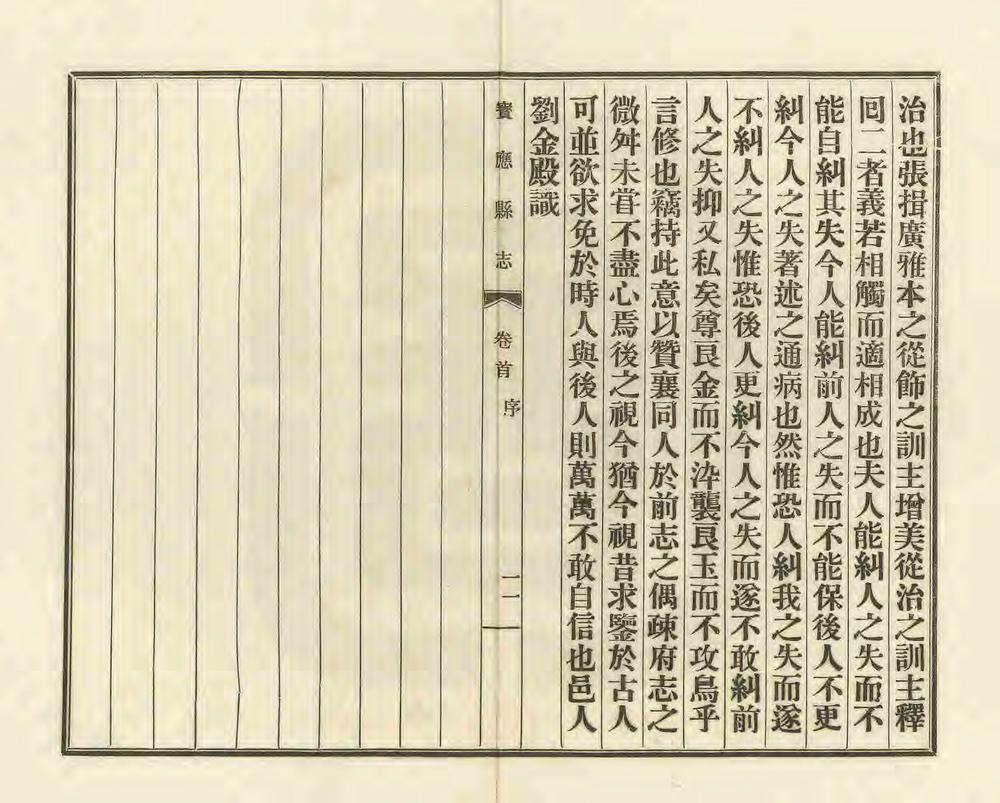 治也張揖廣雅本之從飾之訓主增美從治之訓主釋
回二者義若相觸而適相成也夫人能糾人之失而不
能自糾其失今人能糾前人之失而不能保後人不更
糾今人之失著述之通病也然惟恐人糾我之失而遂
不糾人之失惟恐後人更糾今人之失而遂不敢糾前
人之失抑又私矣尊良金而不淬襲良玉而不攻烏乎
言修也竊持此意以贊襄同人於前志之偶疎府志之
微舛未甞不盡心焉後之視今猶今視昔求鑒於古人
可並欲求免於時人與後人則萬萬不敢自信也邑人
劉金殿識
寶應縣志 卷首 序 二